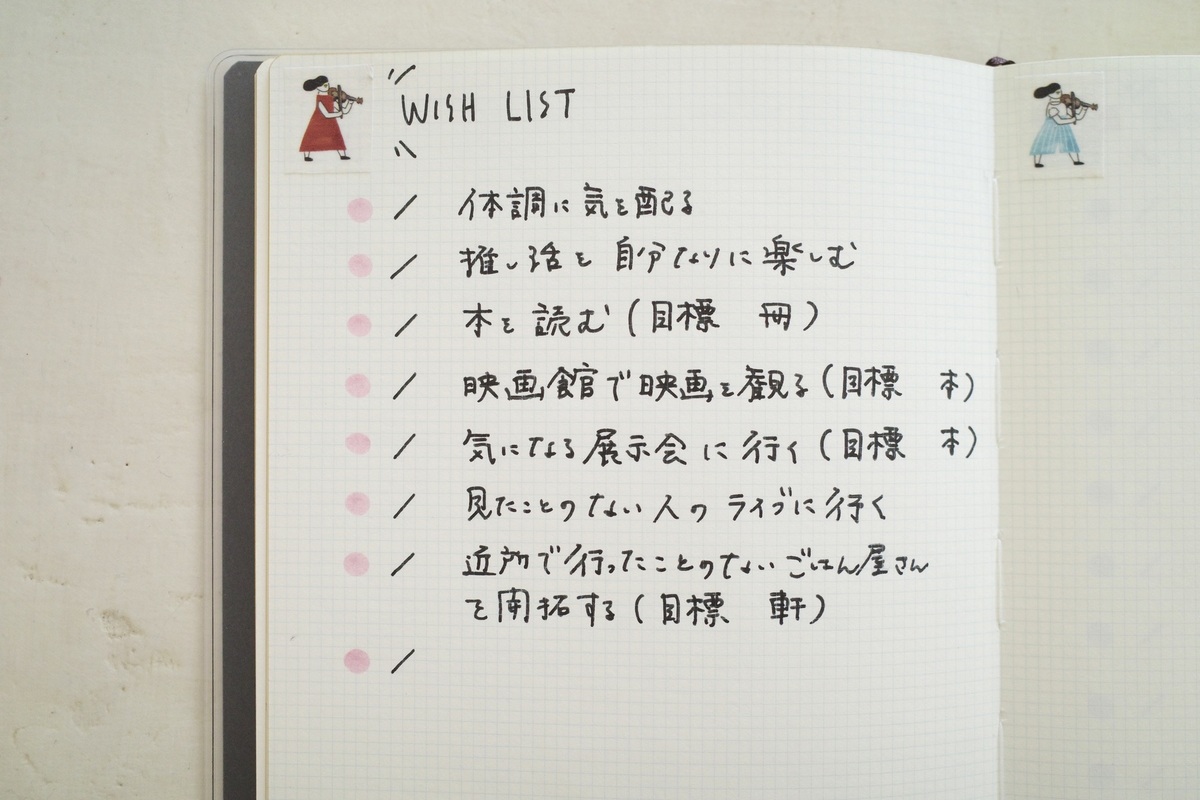 WISH LIST
/ 体調に気を配る
/ 推し活を自分なりに楽しむ
/ 本を読む(目標　冊)
/ 映画館で映画を観る(目標　本)
/ 気になる展示会に行く(目標　本)
/ 見たことのない人のライブに行く
/ 近所で行ったことのないごはん屋さん
を開拓する(目標　軒)
/